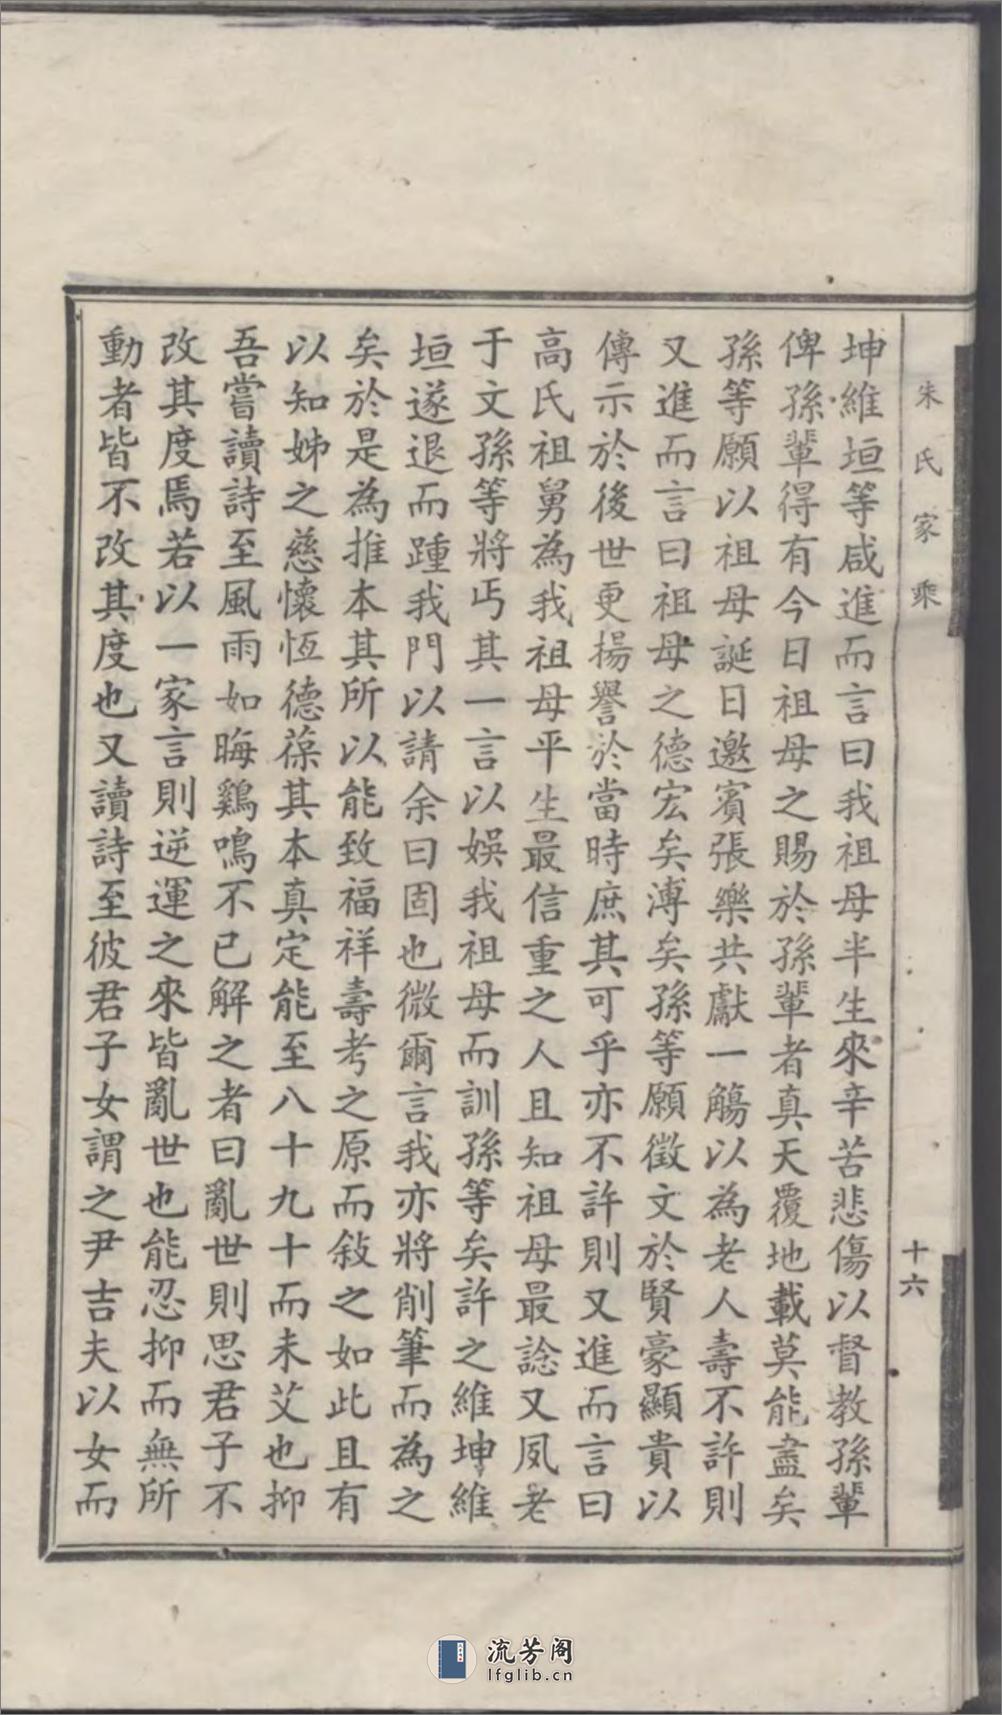 朱氏家乘
十六
坤維垣等咸進而言曰我祖母半生來辛苦悲傷以督教孫輩
俾孫輩得有今日祖母之賜於孫輩者真天覆地載莫能盡矣
孫等願以祖母誕日邀賓張樂共獻一觴以為老人壽不許則
又進而言曰祖母之德宏矣溥矣孫等願徵文於賢豪顯貴以
傳示於後世更揚譽於當時庶其可乎亦不許則又進而言曰
高氏祖舅為我祖母平生最信重之人且知祖母最諗又夙老
于文孫等將丐其一言以娛我祖母而訓孫等矣許之維坤維
垣遂退而踵我門以請余曰固也微爾言我亦將削筆而為之
矣於是為推本其所以能致福祥壽考之原而敍之如此且有
以知姊之慈懷恆德葆其本真定能至八十九十而未艾也抑
吾嘗讀詩至風雨如晦鷄鳴不已解之者曰亂世則思君子不
改其度焉若以一家言則逆運之來皆亂世也能忍抑而無所
動者皆不改其度也又讀詩至彼君子女謂之尹吉夫以女而
流芳阁
lfglib.cn